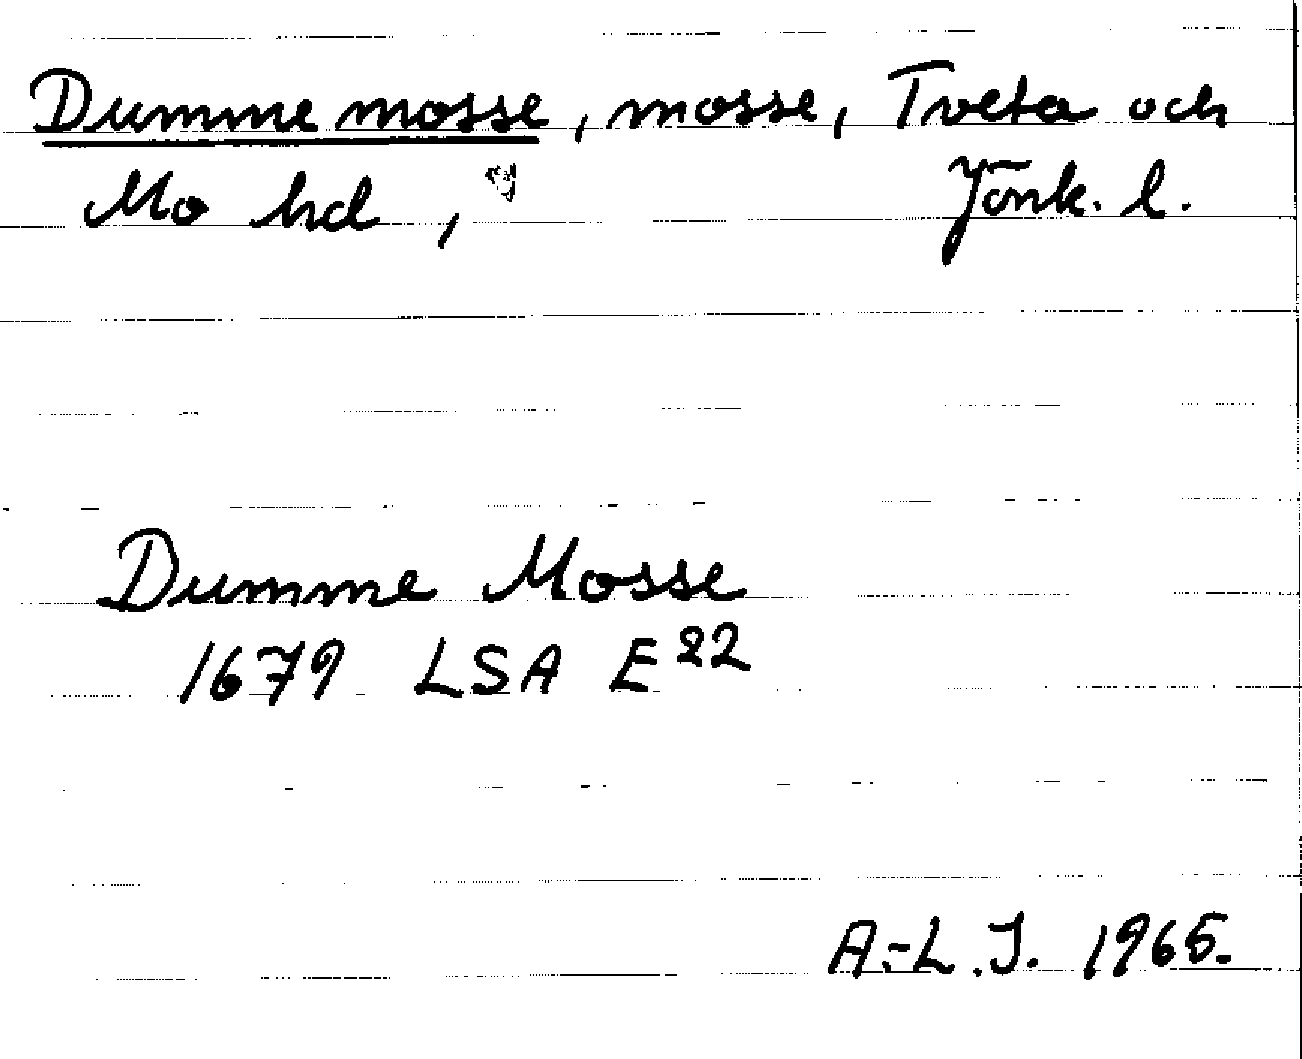 Dumme mosse, mosse, Tveta och
Mo hd, Jönk. l.
Dumme Mosse
1679 LSA E22
A.-L. J. 1965.